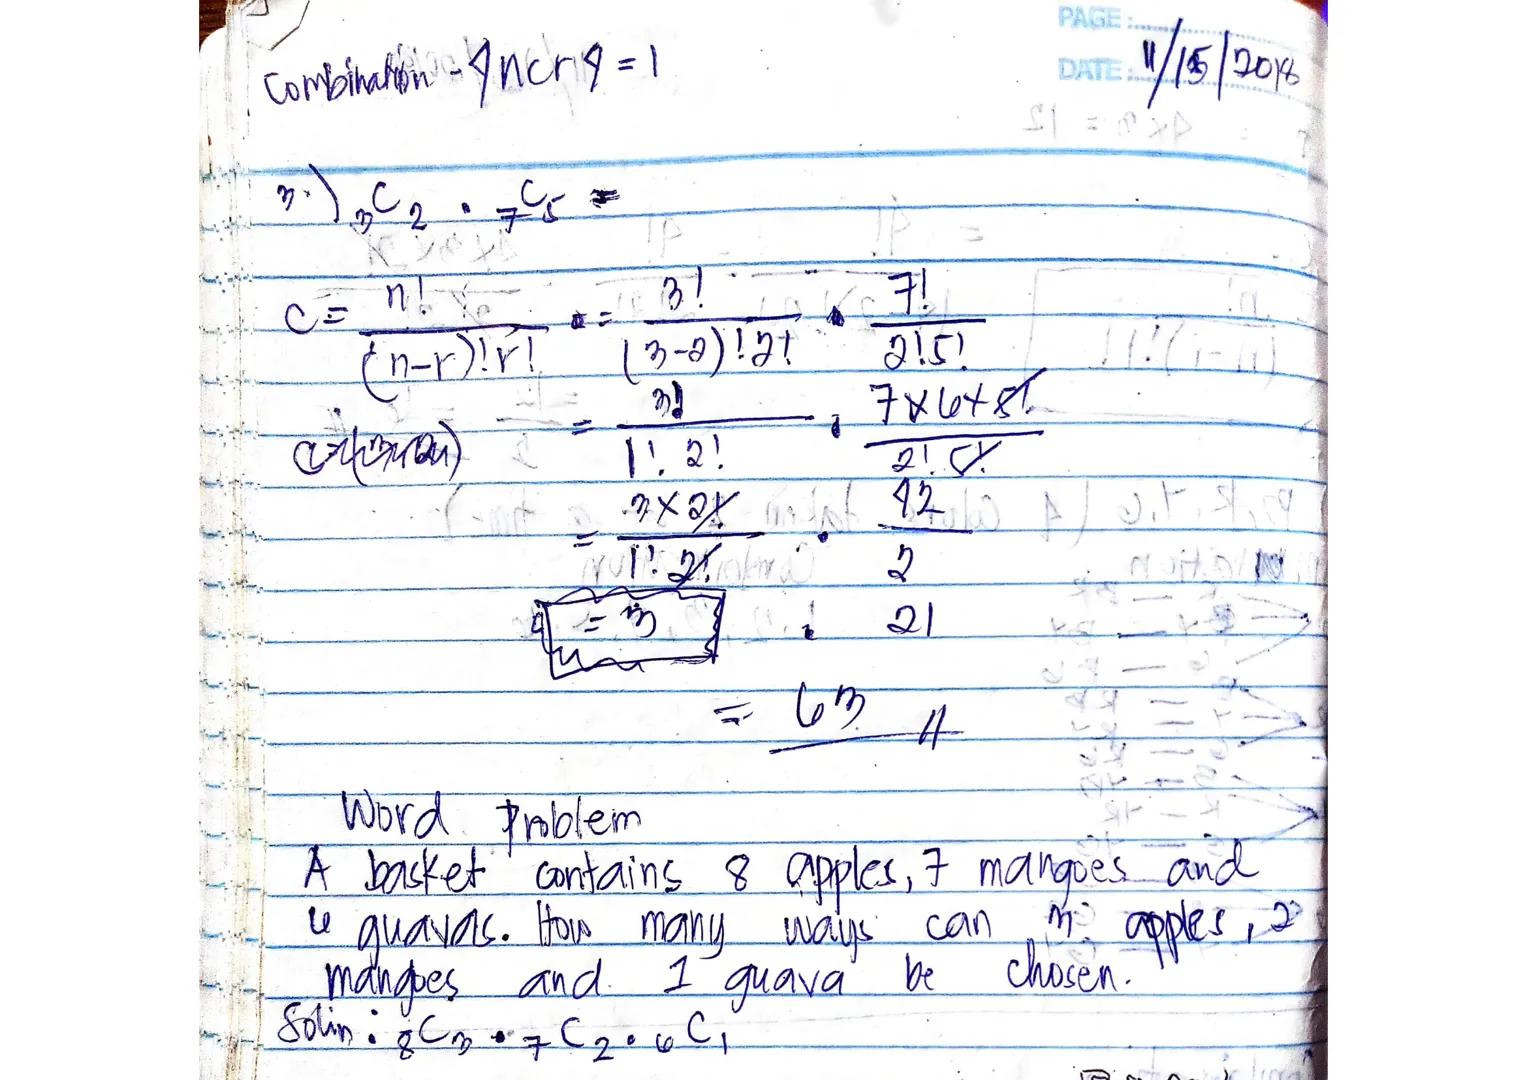 PAGE:
DATE: 11/15/2018
Combination - 4ncr4 = 1
3.) ₃C₂ . ₇C₅ =
C = n! / (n-r)!r! = 3! / (3-2)!2! . 7! / 2!5!
= 3! / 1!.2! . 7x6x5! / 2!.5!
= 3x2! / 1!.2! . 42 / 2
= 3 . 21
= 63 //
Word Problem
A basket contains 8 apples, 7 mangoes and
6 guavas. How many ways can 3 apples, 2
mangoes and 1 guava be chosen.
Soln: ₈C₃ . ₇C₂ . ₆C₁